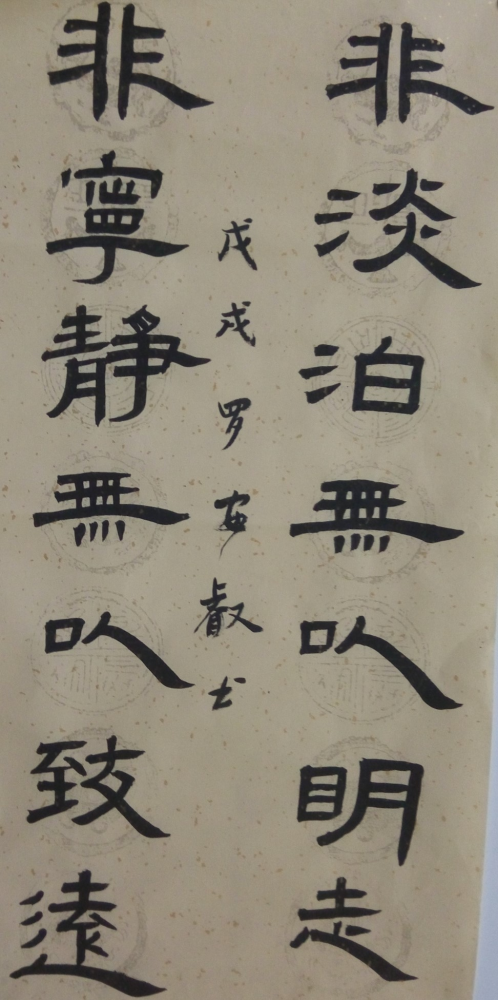 非淡泊無以明志
非寧靜無以致遠
戊戌罗叡书